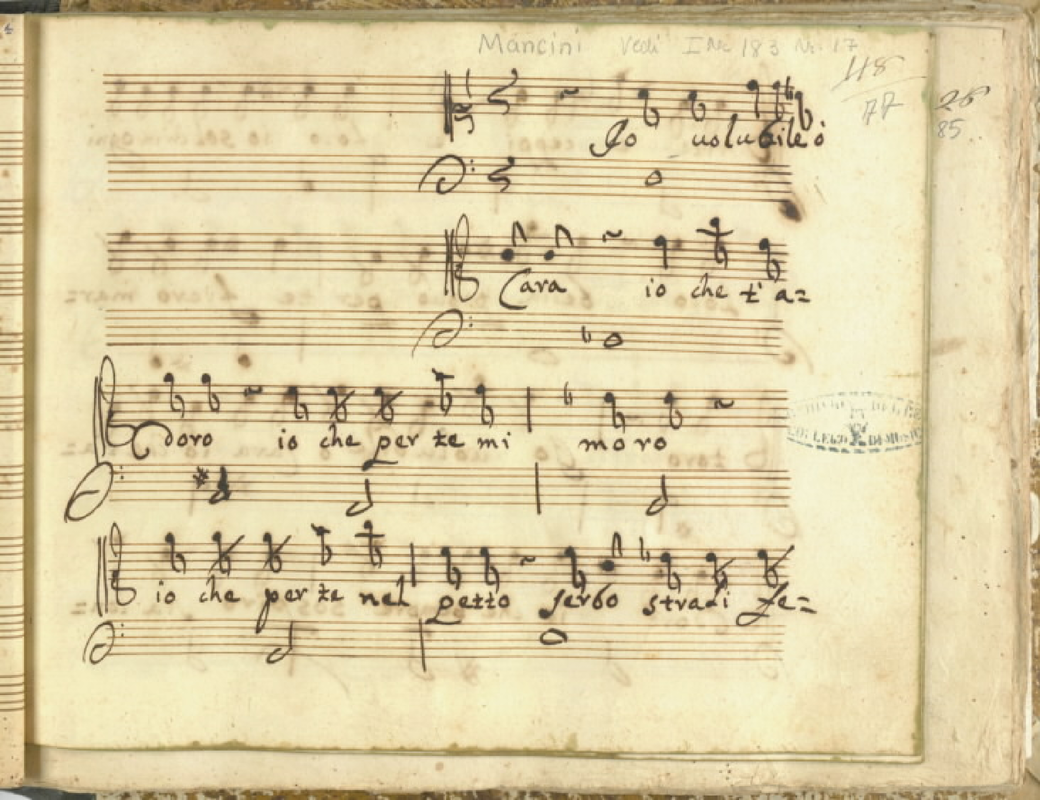 Mancini Vedi I Mc 183 Nr. 17
118
77
26
85.
Io uolubile ò
Cara io che t'a=
doro io che per te mi moro
io che per te nel petto serbo stradi fe=